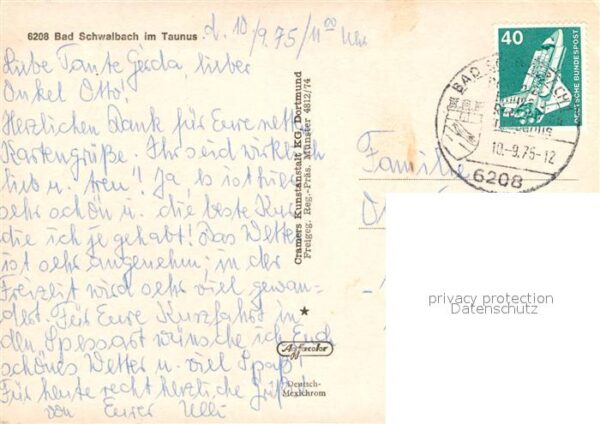 6208 Bad Schwalbach im Taunus
d. 10/9.75/11⁰⁰ Uhr
Liebe Tante Gerda, lieber
Onkel Otto!
Herzlichen Dank für Eure netten
Kartengrüße. Ihr seid wirklich
lieb u. treu! Ja, es ist hier
sehr schön u. die beste Kur
die ich je gehabt! Das Wetter
ist sehr angenehm; in der
Freizeit wird sehr viel gewan-
dert. Für Eure Kurzfahrt in
den Spessart wünsche ich Euch
schönes Wetter u. viel Spaß!
Für heute recht herzliche Grüße
von Eurer Ulli
Cramers Kunstanstalt KG, Dortmund
Freigeg. Reg.-Präs. Münster 4812/74
Agfacolor
Deutsch-
Mexichrom
Familie
40
DEUTSCHE BUNDESPOST
BAD SCHWALBACH
10.-9.75-12
6208
privacy protection
Datenschutz